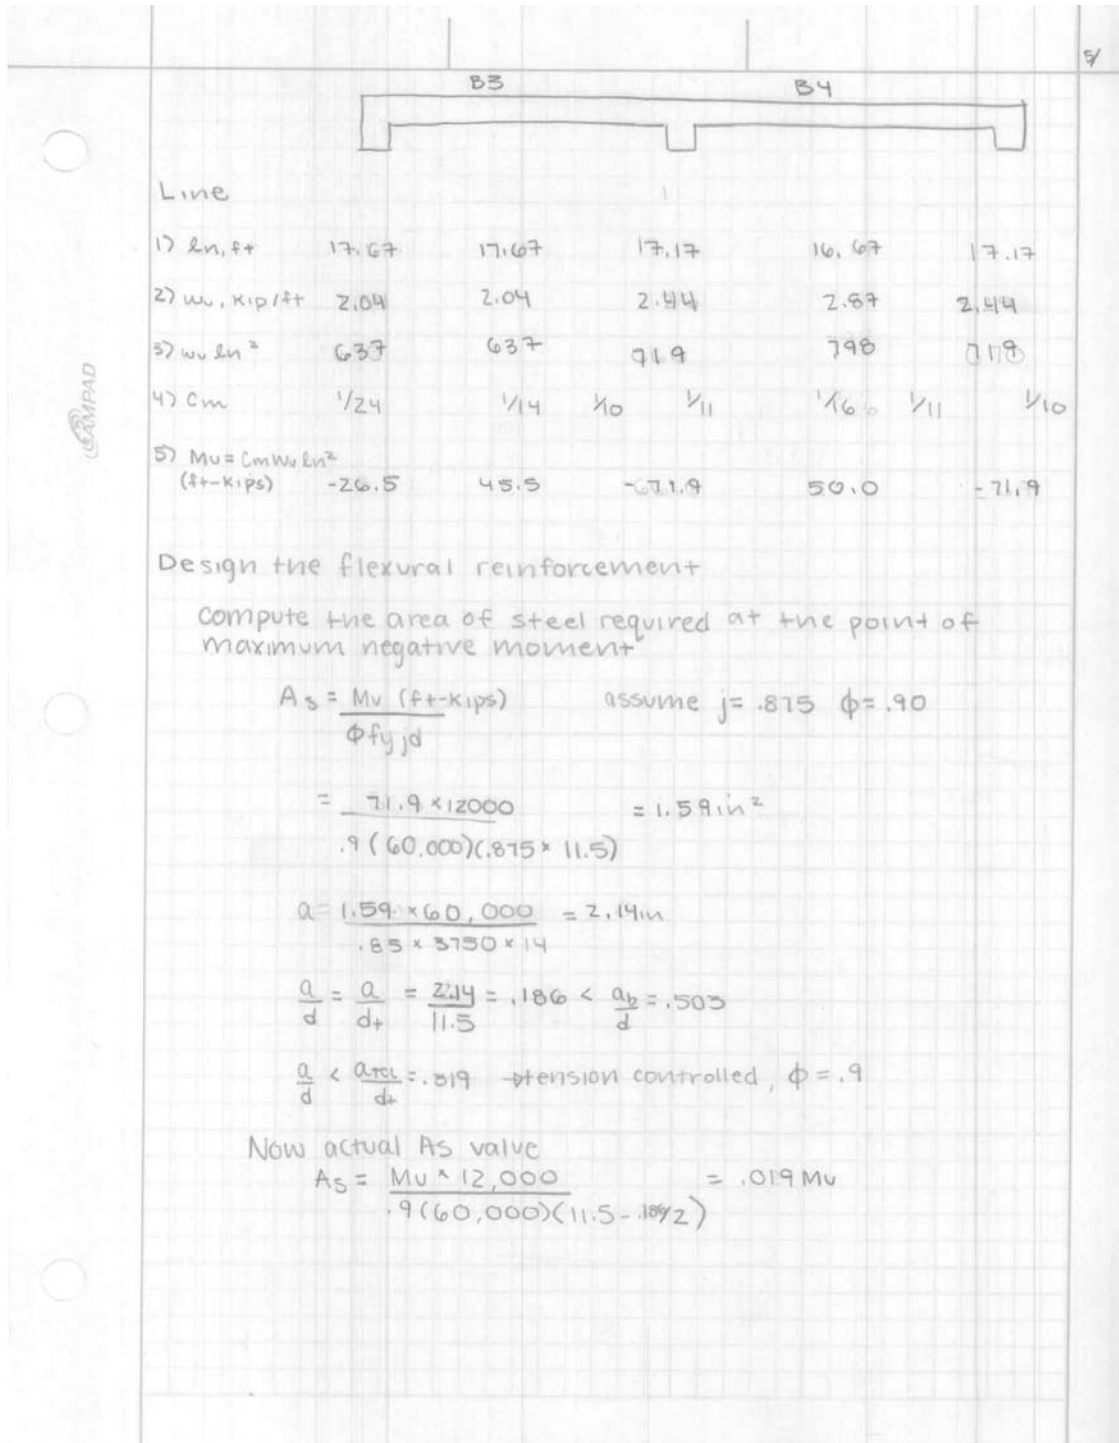 5/
B3 B4
Line
1) ln, ft 17.67 17.67 17.17 16.67 17.17
2) wu, kip/ft 2.04 2.04 2.44 2.87 2.44
3) wu ln² 637 637 719 798 719
4) Cm 1/24 1/14 1/10 1/11 1/16 1/11 1/10
5) Mu = CmWu ln²
(ft-kips) -26.5 45.5 -71.9 50.0 -71.9
CAMPAD
Design the flexural reinforcement
compute the area of steel required at the point of
maximum negative moment
As = Mu (ft-kips) / φfyjd assume j= .875 φ= .90
= 71.9 × 12000 / .9(60.000)(.875 × 11.5) = 1.59in²
a = 1.59 × 60,000 / .85 × 3750 × 14 = 2.14in
a/d = a/dt = 2.14/11.5 = .186 < ab/d = .503
a/d < aTCL/dt = .319 → tension controlled, φ = .9
Now actual As value
As = Mu × 12,000 / .9(60,000)(11.5 - .186/2) = .019 Mu